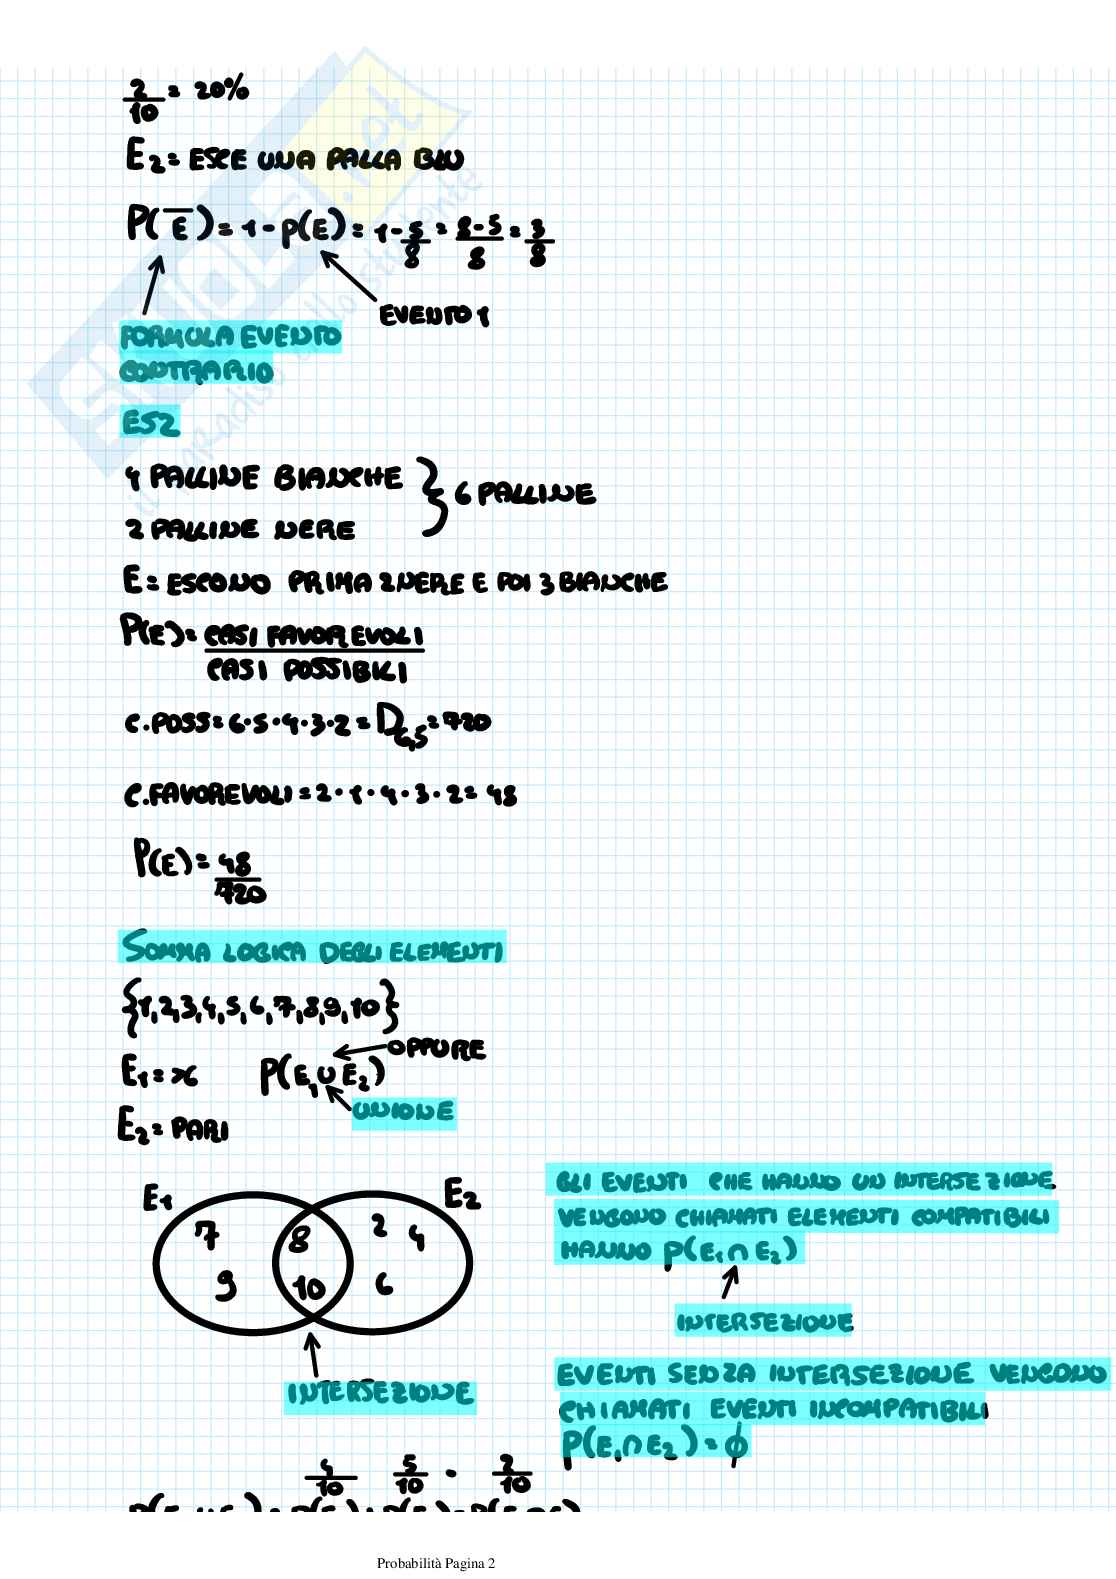 2/10 = 20%
E2 = ESCE UNA PALLA BLU
P(E̅) = 1 - P(E) = 1 - 5/8 = 8-5/8 = 3/8
EVENTO 1
FORMULA EVENTO
CONTRARIO
ES2
4 PALLINE BIANCHE
6 PALLINE
2 PALLINE NERE
E = ESCONO PRIMA 2 NERE E POI 3 BIANCHE
P(E) = CASI FAVOREVOLI / CASI POSSIBILI
C.POSS = 6·5·4·3·2 = D6,5 = 720
C.FAVOREVOLI = 2·1·4·3·2 = 48
P(E) = 48/720
SOMMA LOGICA DEGLI ELEMENTI
{1,2,3,4,5,6,7,8,9,10}
OPPURE
E1 = >6 P(E1 ∪ E2)
UNIONE
E2 = PARI
E1 E2
7 8 2 4
9 10 6
INTERSEZIONE
GLI EVENTI CHE HANNO UN INTERSEZIONE
VENGONO CHIAMATI ELEMENTI COMPATIBILI
HANNO P(E1 ∩ E2)
INTERSEZIONE
EVENTI SENZA INTERSEZIONE VENGONO
CHIAMATI EVENTI INCOMPATIBILI
P(E1 ∩ E2) = ϕ
4/10 5/10 - 2/10
Probabilità Pagina 2
SKUOLA.net
il paradiso dello studente